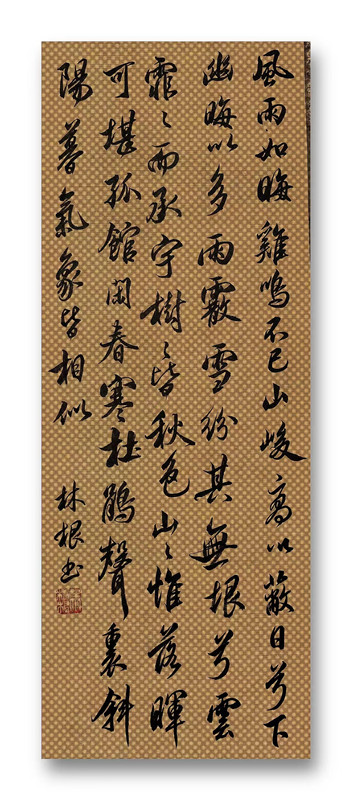 風雨如晦雞鳴不已山峻高以蔽日兮下
幽晦以多雨霰雪紛其無垠兮雲
霏〻而承宇樹〻皆秋色山〻惟落暉
可堪孤館閉春寒杜鵑聲裏斜
陽暮氣象皆相似
林根书